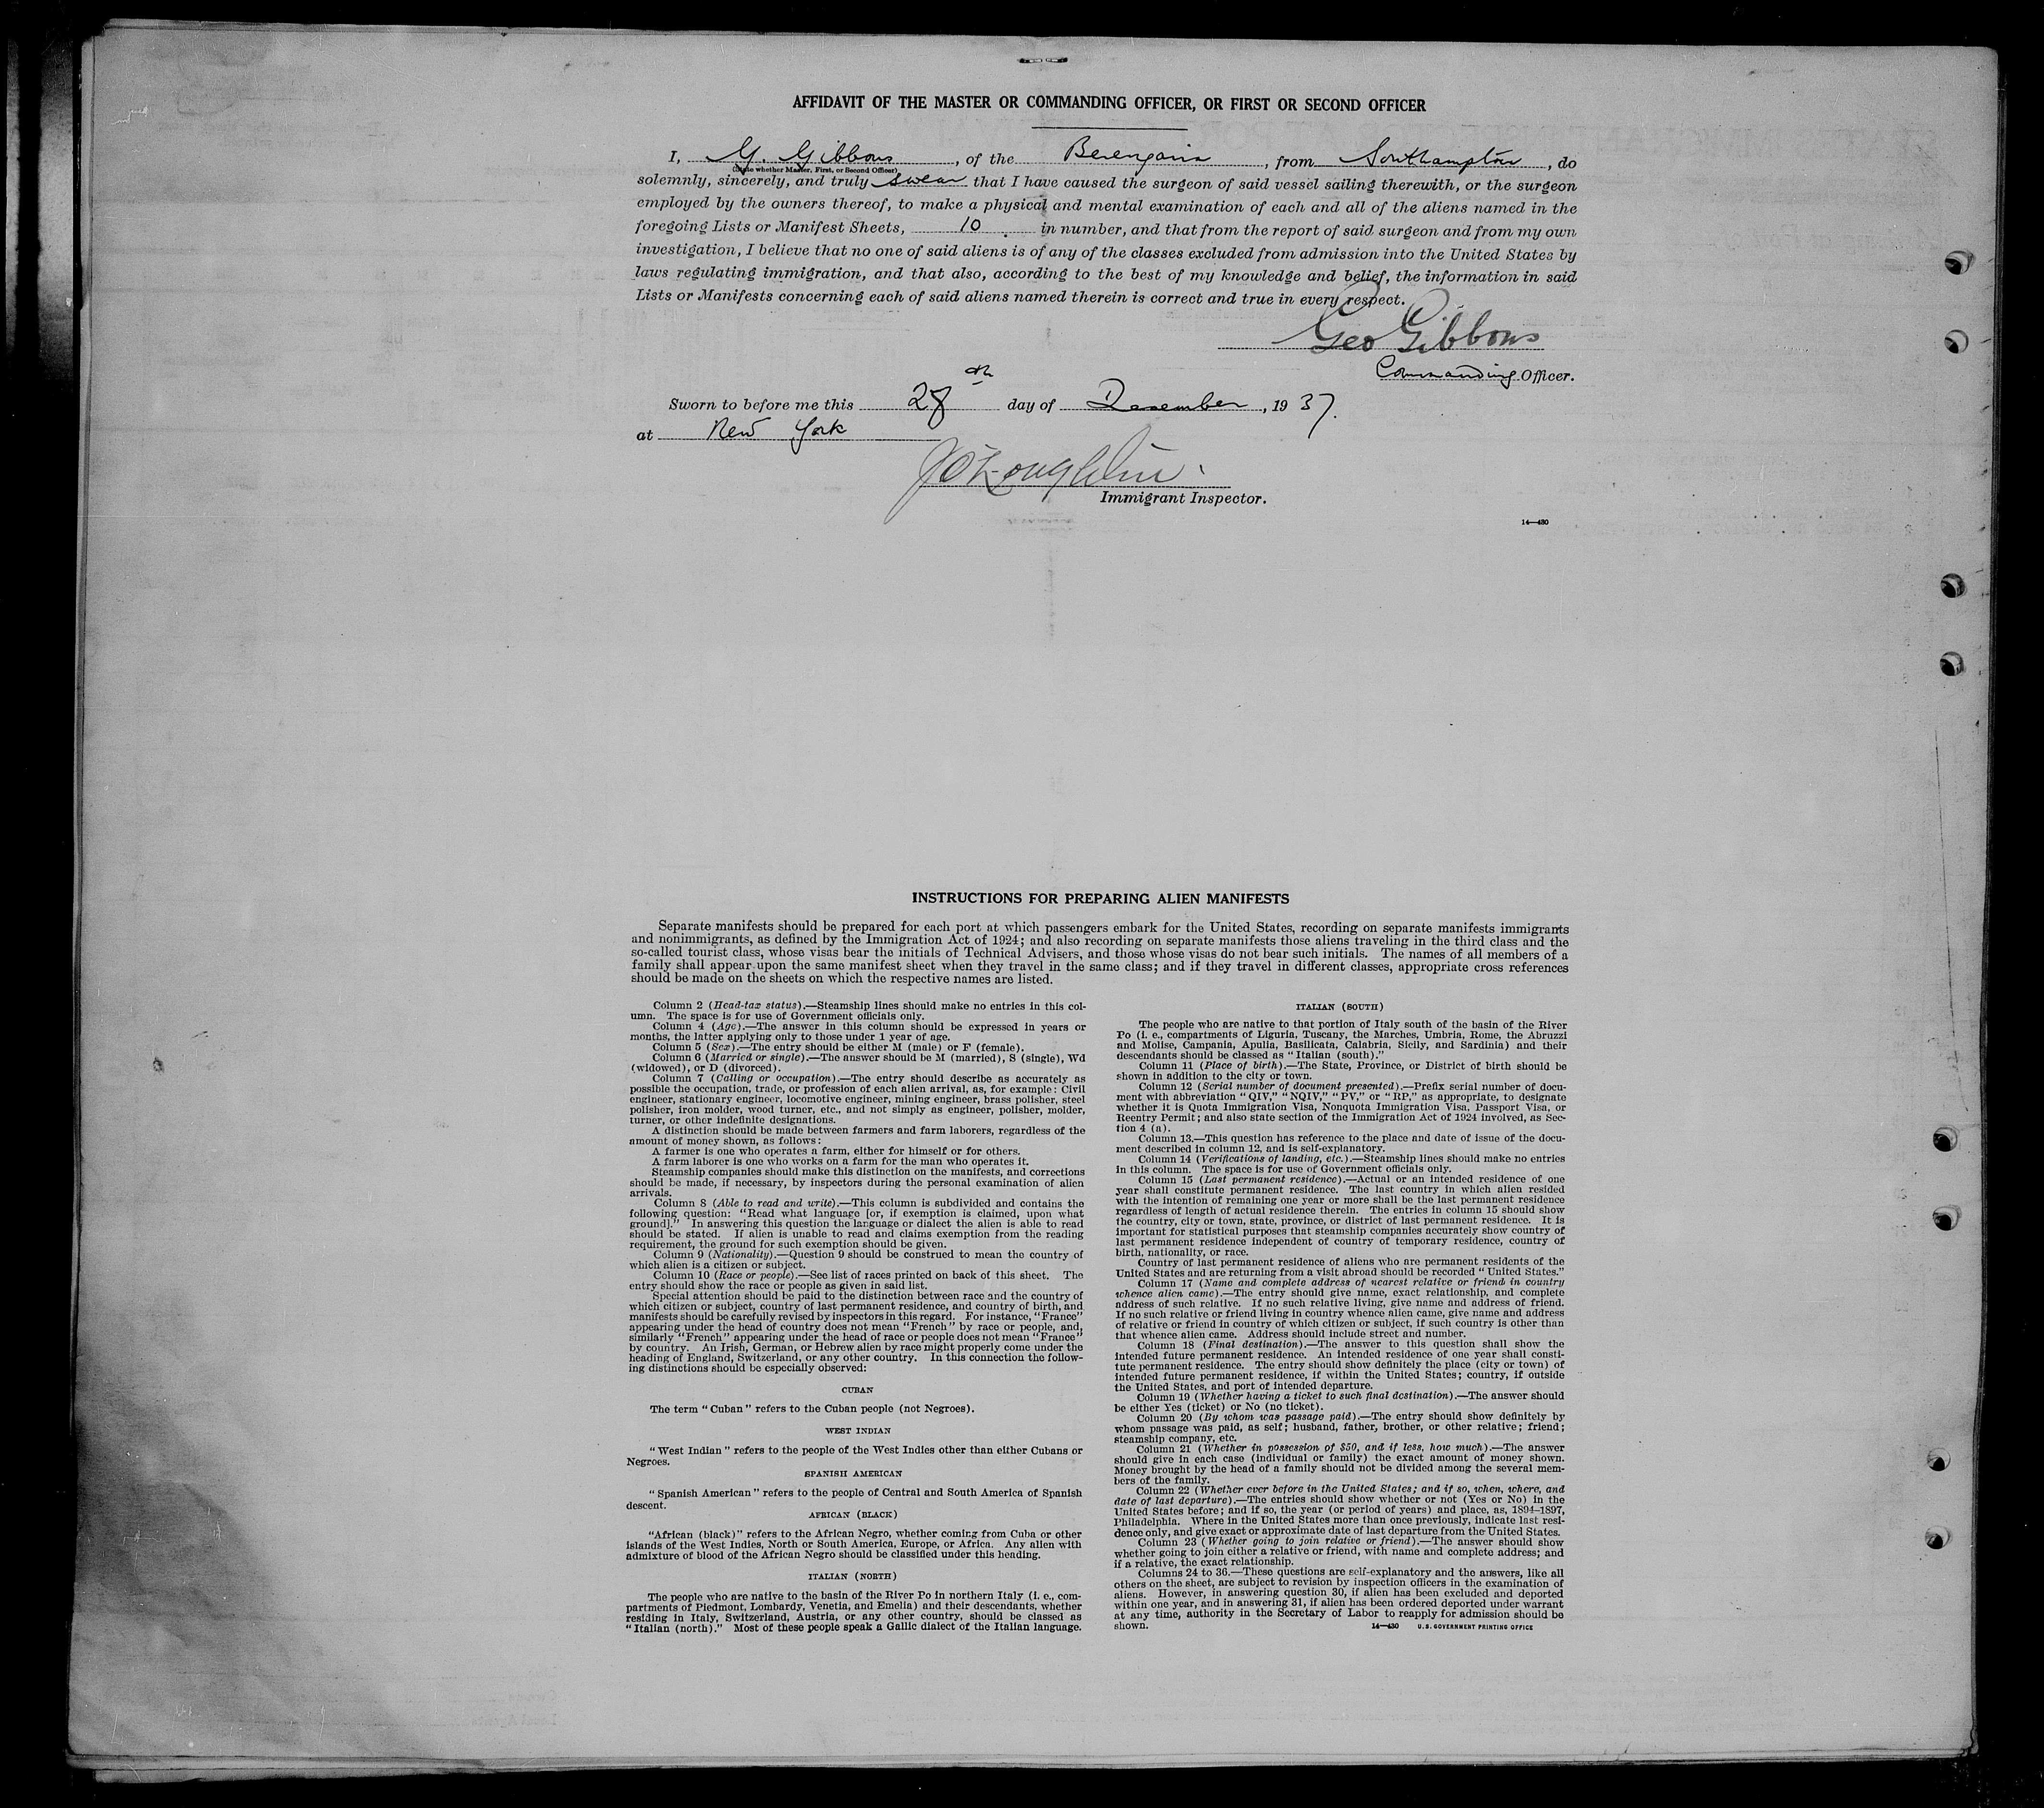 AFFIDAVIT OF THE MASTER OR COMMANDING OFFICER, OR FIRST OR SECOND OFFICER
I, G. Gibbons, of the Berengaria, from Southampton, do
(State whether Master, First, or Second Officer)
solemnly, sincerely, and truly swear that I have caused the surgeon of said vessel sailing therewith, or the surgeon
employed by the owners thereof, to make a physical and mental examination of each and all of the aliens named in the
foregoing Lists or Manifest Sheets, 10 in number, and that from the report of said surgeon and from my own
investigation, I believe that no one of said aliens is of any of the classes excluded from admission into the United States by
laws regulating immigration, and that also, according to the best of my knowledge and belief, the information in said
Lists or Manifests concerning each of said aliens named therein is correct and true in every respect.
Geo Gibbons
Commanding Officer.
Sworn to before me this 28th day of December, 1937.
at New York
J O'Loughlin
Immigrant Inspector.
14—430
INSTRUCTIONS FOR PREPARING ALIEN MANIFESTS
Separate manifests should be prepared for each port at which passengers embark for the United States, recording on separate manifests immigrants
and nonimmigrants, as defined by the Immigration Act of 1924; and also recording on separate manifests those aliens traveling in the third class and the
so-called tourist class, whose visas bear the initials of Technical Advisers, and those whose visas do not bear such initials. The names of all members of a
family shall appear upon the same manifest sheet when they travel in the same class; and if they travel in different classes, appropriate cross references
should be made on the sheets on which the respective names are listed.
Column 2 (Head-tax status).—Steamship lines should make no entries in this col-
umn. The space is for use of Government officials only.
Column 4 (Age).—The answer in this column should be expressed in years or
months, the latter applying only to those under 1 year of age.
Column 5 (Sex).—The entry should be either M (male) or F (female).
Column 6 (Married or single).—The answer should be M (married), S (single), Wd
(widowed), or D (divorced).
Column 7 (Calling or occupation).—The entry should describe as accurately as
possible the occupation, trade, or profession of each alien arrival, as, for example: Civil
engineer, stationary engineer, locomotive engineer, mining engineer, brass polisher, steel
polisher, iron molder, wood turner, etc., and not simply as engineer, polisher, molder,
turner, or other indefinite designations.
A distinction should be made between farmers and farm laborers, regardless of the
amount of money shown, as follows:
A farmer is one who operates a farm, either for himself or for others.
A farm laborer is one who works on a farm for the man who operates it.
Steamship companies should make this distinction on the manifests, and corrections
should be made, if necessary, by inspectors during the personal examination of alien
arrivals.
Column 8 (Able to read and write).—This column is subdivided and contains the
following question: "Read what language [or, if exemption is claimed, upon what
ground]." In answering this question the language or dialect the alien is able to read
should be stated. If alien is unable to read and claims exemption from the reading
requirement, the ground for such exemption should be given.
Column 9 (Nationality).—Question 9 should be construed to mean the country of
which alien is a citizen or subject.
Column 10 (Race or people).—See list of races printed on back of this sheet. The
entry should show the race or people as given in said list.
Special attention should be paid to the distinction between race and the country of
which citizen or subject, country of last permanent residence, and country of birth, and
manifests should be carefully revised by inspectors in this regard. For instance, "France"
appearing under the head of country does not mean "French" by race or people, and,
similarly "French" appearing under the head of race or people does not mean "France"
by country. An Irish, German, or Hebrew alien by race might properly come under the
heading of England, Switzerland, or any other country. In this connection the follow-
ing distinctions should be especially observed:
CUBAN
The term "Cuban" refers to the Cuban people (not Negroes).
WEST INDIAN
"West Indian" refers to the people of the West Indies other than either Cubans or
Negroes.
SPANISH AMERICAN
"Spanish American" refers to the people of Central and South America of Spanish
descent.
AFRICAN (BLACK)
"African (black)" refers to the African Negro, whether coming from Cuba or other
islands of the West Indies, North or South America, Europe, or Africa. Any alien with
admixture of blood of the African Negro should be classified under this heading.
ITALIAN (NORTH)
The people who are native to the basin of the River Po in northern Italy (i. e., com-
partments of Piedmont, Lombardy, Venetia, and Emelia) and their descendants, whether
residing in Italy, Switzerland, Austria, or any other country, should be classed as
"Italian (north)." Most of these people speak a Gallic dialect of the Italian language.
ITALIAN (SOUTH)
The people who are native to that portion of Italy south of the basin of the River
Po (i. e., compartments of Liguria, Tuscany, the Marches, Umbria, Rome, the Abruzzi
and Molise, Campania, Apulia, Basilicata, Calabria, Sicily, and Sardinia) and their
descendants should be classed as "Italian (south)."
Column 11 (Place of birth).—The State, Province, or District of birth should be
shown in addition to the city or town.
Column 12 (Serial number of document presented).—Prefix serial number of docu-
ment with abbreviation "QIV," "NQIV," "PV," or "RP," as appropriate, to designate
whether it is Quota Immigration Visa, Nonquota Immigration Visa, Passport Visa, or
Reentry Permit; and also state section of the Immigration Act of 1924 involved, as Sec-
tion 4 (a).
Column 13.—This question has reference to the place and date of issue of the docu-
ment described in column 12, and is self-explanatory.
Column 14 (Verifications of landing, etc.).—Steamship lines should make no entries
in this column. The space is for use of Government officials only.
Column 15 (Last permanent residence).—Actual or an intended residence of one
year shall constitute permanent residence. The last country in which alien resided
with the intention of remaining one year or more shall be the last permanent residence
regardless of length of actual residence therein. The entries in column 15 should show
the country, city or town, state, province, or district of last permanent residence. It is
important for statistical purposes that steamship companies accurately show country of
last permanent residence independent of country of temporary residence, country of
birth, nationality, or race.
Country of last permanent residence of aliens who are permanent residents of the
United States and are returning from a visit abroad should be recorded "United States."
Column 17 (Name and complete address of nearest relative or friend in country
whence alien came).—The entry should give name, exact relationship, and complete
address of such relative. If no such relative living, give name and address of friend.
If no such relative or friend living in country whence alien came, give name and address
of relative or friend in country of which citizen or subject, if such country is other than
that whence alien came. Address should include street and number.
Column 18 (Final destination).—The answer to this question shall show the
intended future permanent residence. An intended residence of one year shall consti-
tute permanent residence. The entry should show definitely the place (city or town) of
intended future permanent residence, if within the United States; country, if outside
the United States, and port of intended departure.
Column 19 (Whether having a ticket to such final destination).—The answer should
be either Yes (ticket) or No (no ticket).
Column 20 (By whom was passage paid).—The entry should show definitely by
whom passage was paid, as self; husband, father, brother, or other relative; friend;
steamship company, etc.
Column 21 (Whether in possession of $50, and if less, how much).—The answer
should give in each case (individual or family) the exact amount of money shown.
Money brought by the head of a family should not be divided among the several mem-
bers of the family.
Column 22 (Whether ever before in the United States; and if so, when, where, and
date of last departure).—The entries should show whether or not (Yes or No) in the
United States before; and if so, the year (or period of years) and place, as, 1894–1897,
Philadelphia. Where in the United States more than once previously, indicate last resi-
dence only, and give exact or approximate date of last departure from the United States.
Column 23 (Whether going to join relative or friend).—The answer should show
whether going to join either a relative or friend, with name and complete address; and
if a relative, the exact relationship.
Columns 24 to 36.—These questions are self-explanatory and the answers, like all
others on the sheet, are subject to revision by inspection officers in the examination of
aliens. However, in answering question 30, if alien has been excluded and deported
within one year, and in answering 31, if alien has been ordered deported under warrant
at any time, authority in the Secretary of Labor to reapply for admission should be
shown.
14—430 U.S. GOVERNMENT PRINTING OFFICE